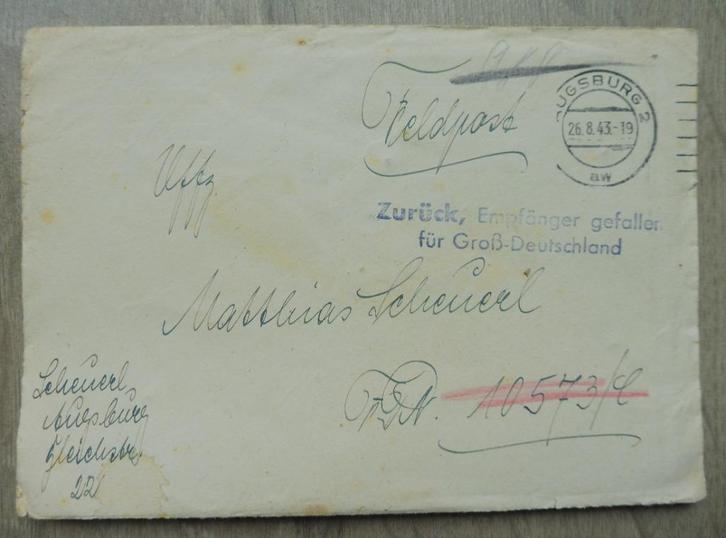 Feldpost
AUGSBURG 2
26.8.43.-19
aw
Uffz.
Zurück, Empfänger gefallen
für Groß-Deutschland
Matthias Scheuerl
F.P.N. 10573/C
Scheuerl
Augsburg
22